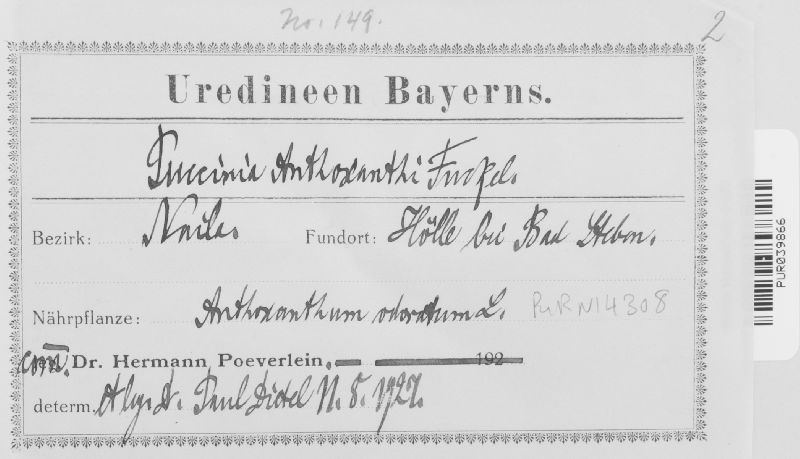 No. 149.
2
Uredineen Bayerns.
Puccinia Anthoxanthi Fuckel.
Bezirk: Naila. Fundort: Hölle bei Bad Steben.
Nährpflanze: Anthoxanthum odoratum L. PUR N14308
com. Dr. Hermann Poeverlein. 192
determ. et leg. Dr. Paul Dietel 11. 8. 1927.
PUR039866